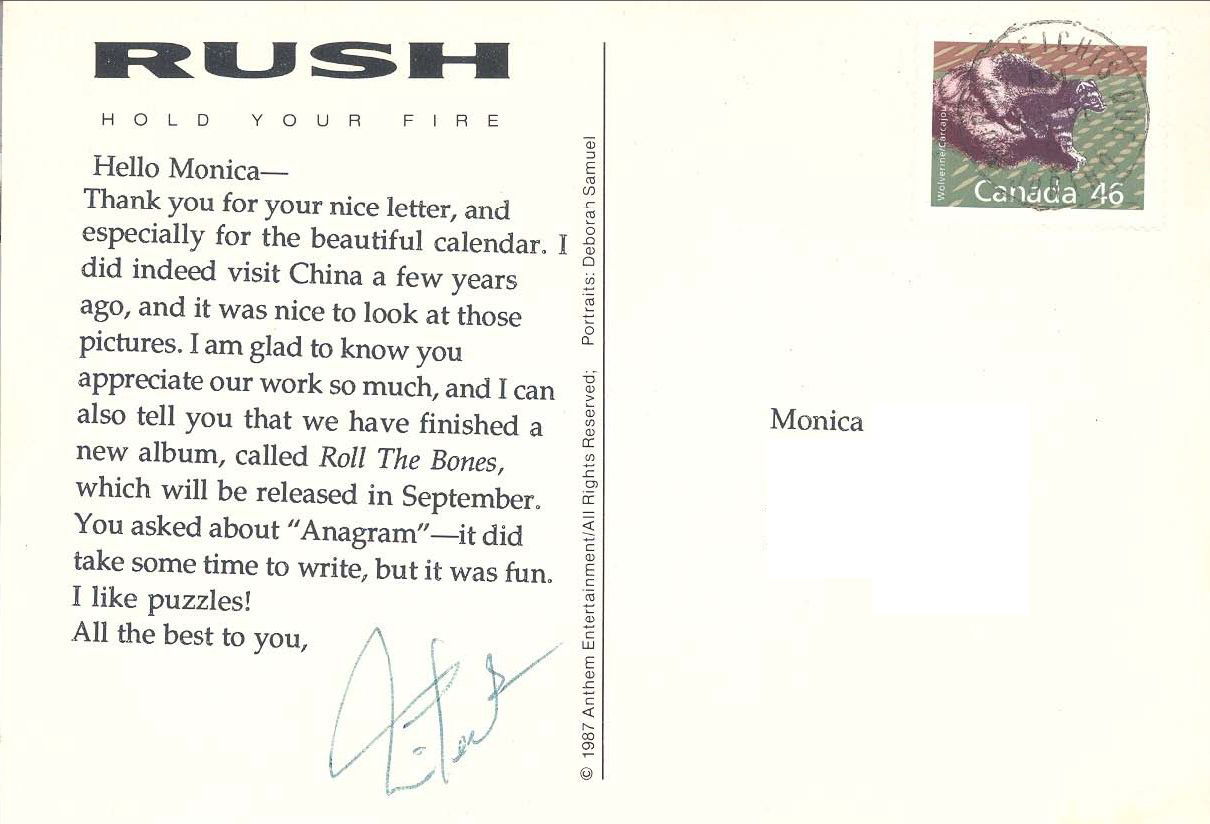 RUSH
HOLD YOUR FIRE
Hello Monica—
Thank you for your nice letter, and
especially for the beautiful calendar. I
did indeed visit China a few years
ago, and it was nice to look at those
pictures. I am glad to know you
appreciate our work so much, and I can
also tell you that we have finished a
new album, called Roll The Bones,
which will be released in September.
You asked about “Anagram”—it did
take some time to write, but it was fun.
I like puzzles!
All the best to you,
© 1987 Anthem Entertainment/All Rights Reserved; Portraits: Deborah Samuel
Wolverine/Carcajou
Canada 46
Monica